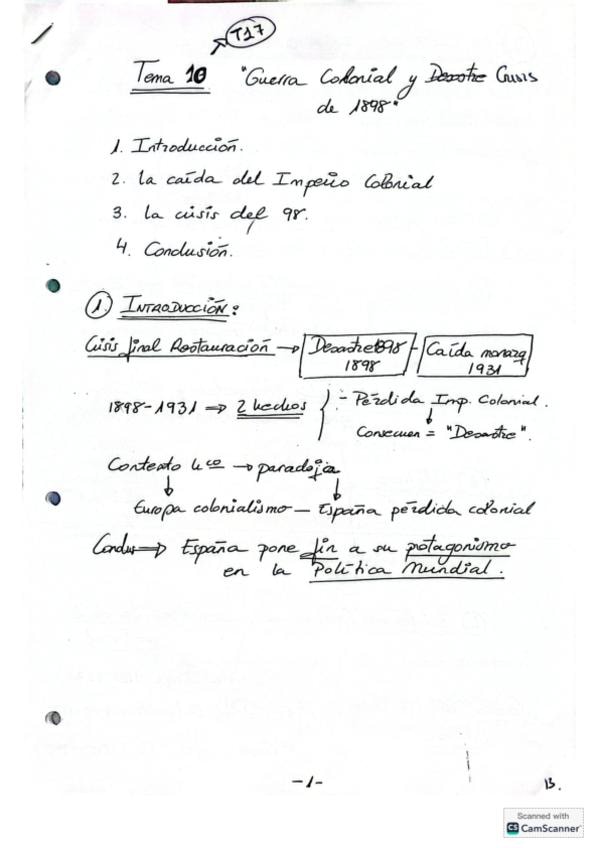 T17
Tema 10 "Guerra Colonial y Desastre Crisis
de 1898"
1. Introducción.
2. La caída del Imperio Colonial
3. La crisis del 98.
4. Conclusión.
1. INTRODUCCIÓN:
Crisis final Restauración → Desastre 98 - Caída monarq
1898 1931
1898-1931 ⇒ 2 hechos - Pérdida Imp. Colonial.
Consecuen = "Desastre".
Contexto hco → paradoja
Europa colonialismo - España pérdida colonial
Conclus ⇒ España pone fin a su protagonismo
en la Política Mundial.
-1-
13.
Scanned with
CS CamScanner